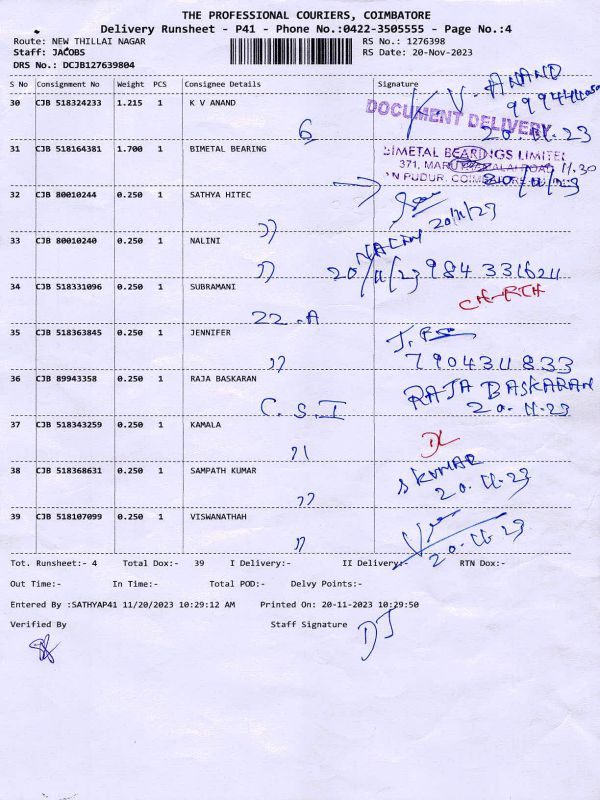 THE PROFESSIONAL COURIERS, COIMBATORE
Delivery Runsheet - P41 - Phone No.:0422-3505555 - Page No.:4
Route: NEW THILLAI NAGAR RS No.: 1276398
Staff: JACOBS RS Date: 20-Nov-2023
DRS No.: DCJB127639804
S No Consignment No Weight PCS Consignee Details Signature
30 CJB 518324233 1.215 1 K V ANAND K.V. ANAND
DOCUMENT DELIVERY
6 20.11.23
31 CJB 518164381 1.700 1 BIMETAL BEARING BIMETAL BEARINGS LIMITED
371, ROAD 11.30
PUDUR, 20/11/23
32 CJB 80010244 0.250 1 SATHYA HITEC 20/11/23
33 CJB 80010240 0.250 1 NALINI NALINI
20/11/23
34 CJB 518331096 0.250 1 SUBRAMANI
22-A
35 CJB 518363845 0.250 1 JENNIFER
7904311833
36 CJB 89943358 0.250 1 RAJA BASKARAN RAJA BASKARAN
C.S.I 20.11.23
37 CJB 518343259 0.250 1 KAMALA DL
38 CJB 518368631 0.250 1 SAMPATH KUMAR S KUMAR
20.11.23
39 CJB 518107099 0.250 1 VISWANATHAH
20.11.23
Tot. Runsheet:- 4 Total Dox:- 39 I Delivery:- II Delivery:- RTN Dox:-
Out Time:- In Time:- Total POD:- Delvy Points:-
Entered By :SATHYAP41 11/20/2023 10:29:12 AM Printed On: 20-11-2023 10:29:50
Verified By Staff Signature DJ